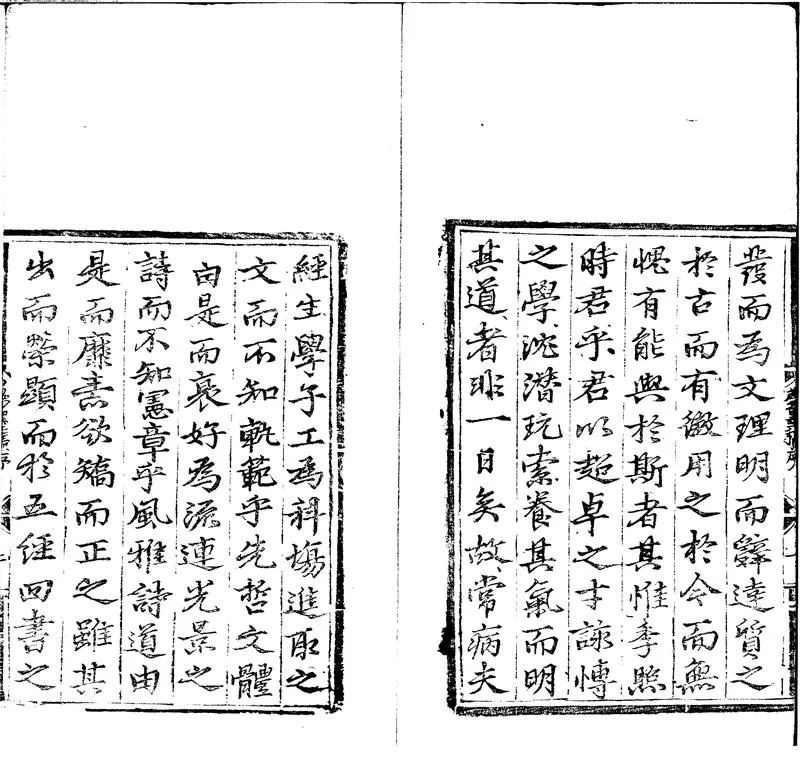 發而為文理明而辭達質之
於古而有徵用之於今而無
愧有能與於斯者其惟季熙
時君乎君以超卓之才諒愽
之學沈潛玩索養其氣而明
其道者非一日矣故常病夫
經生學子工為科塲進取之
文而不知軌範乎先哲文體
由是而衰好為流連光景之
詩而不知憲章乎風雅詩道由
是而靡素欲矯而正之雖其
出而榮顯而於五經四書之